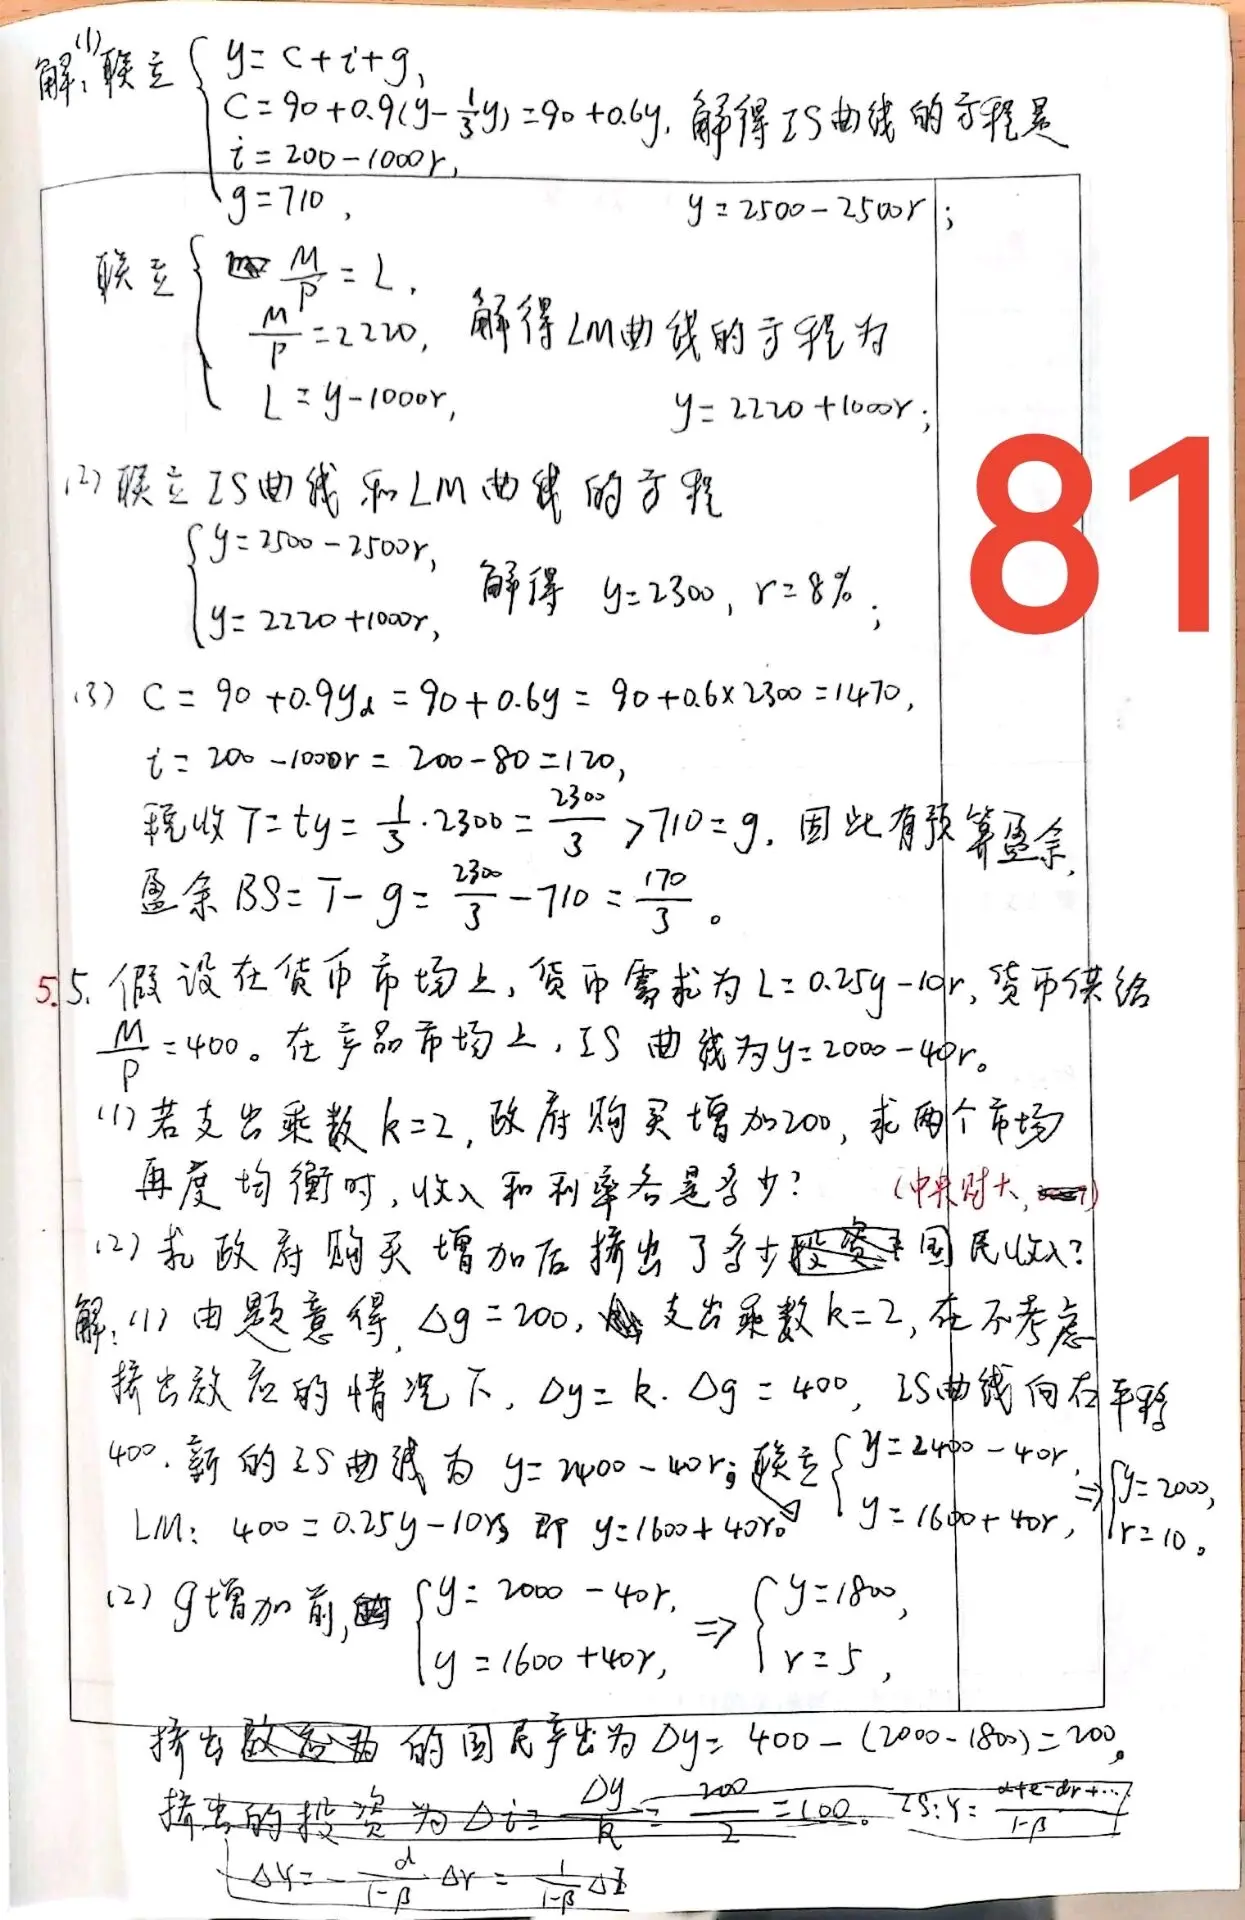 解:(1)联立 { y=c+i+g,
c=90+0.9(y-1/3y)=90+0.6y, 解得IS曲线的方程是
i=200-1000r,
g=710, y=2500-2500r;
联立 { M/P=L,
M/P=2220, 解得LM曲线的方程为
L=y-1000r, y=2220+1000r;
81
(2)联立IS曲线和LM曲线的方程
{ y=2500-2500r,
解得 y=2300, r=8%;
y=2220+1000r,
(3) C=90+0.9yd=90+0.6y=90+0.6×2300=1470,
i=200-1000r=200-80=120,
税收T=ty=1/3·2300=2300/3>710=g. 因此有预算盈余,
盈余BS=T-g=2300/3-710=170/3。
5.5. 假设在货币市场上,货币需求为L=0.25y-10r,货币供给
M/P=400。在产品市场上,IS曲线为y=2000-40r。
(1)若支出乘数k=2,政府购买增加200,求两个市场
再度均衡时,收入和利率各是多少? (中央财大,
(2)求政府购买增加后挤出了多少投资国民收入?
解:(1)由题意得,Δg=200, 支出乘数k=2,在不考虑
挤出效应的情况下,Δy=k·Δg=400, IS曲线向右平移
400.新的IS曲线为y=2400-40r; 联立 { y=2400-40r,
⇒ { y=2000,
LM: 400=0.25y-10r, 即 y=1600+40r。 y=1600+40r, r=10。
(2) g增加前, { y=2000-40r, ⇒ { y=1800,
y=1600+40r, r=5,
挤出效应为的国民产出为Δy=400-(2000-1800)=200。
挤出的投资为Δi=Δy/k=200/2=100。 IS:Y=α+e-dr+…/1-β
ΔY=-d/1-β Δr=1/1-β ΔI